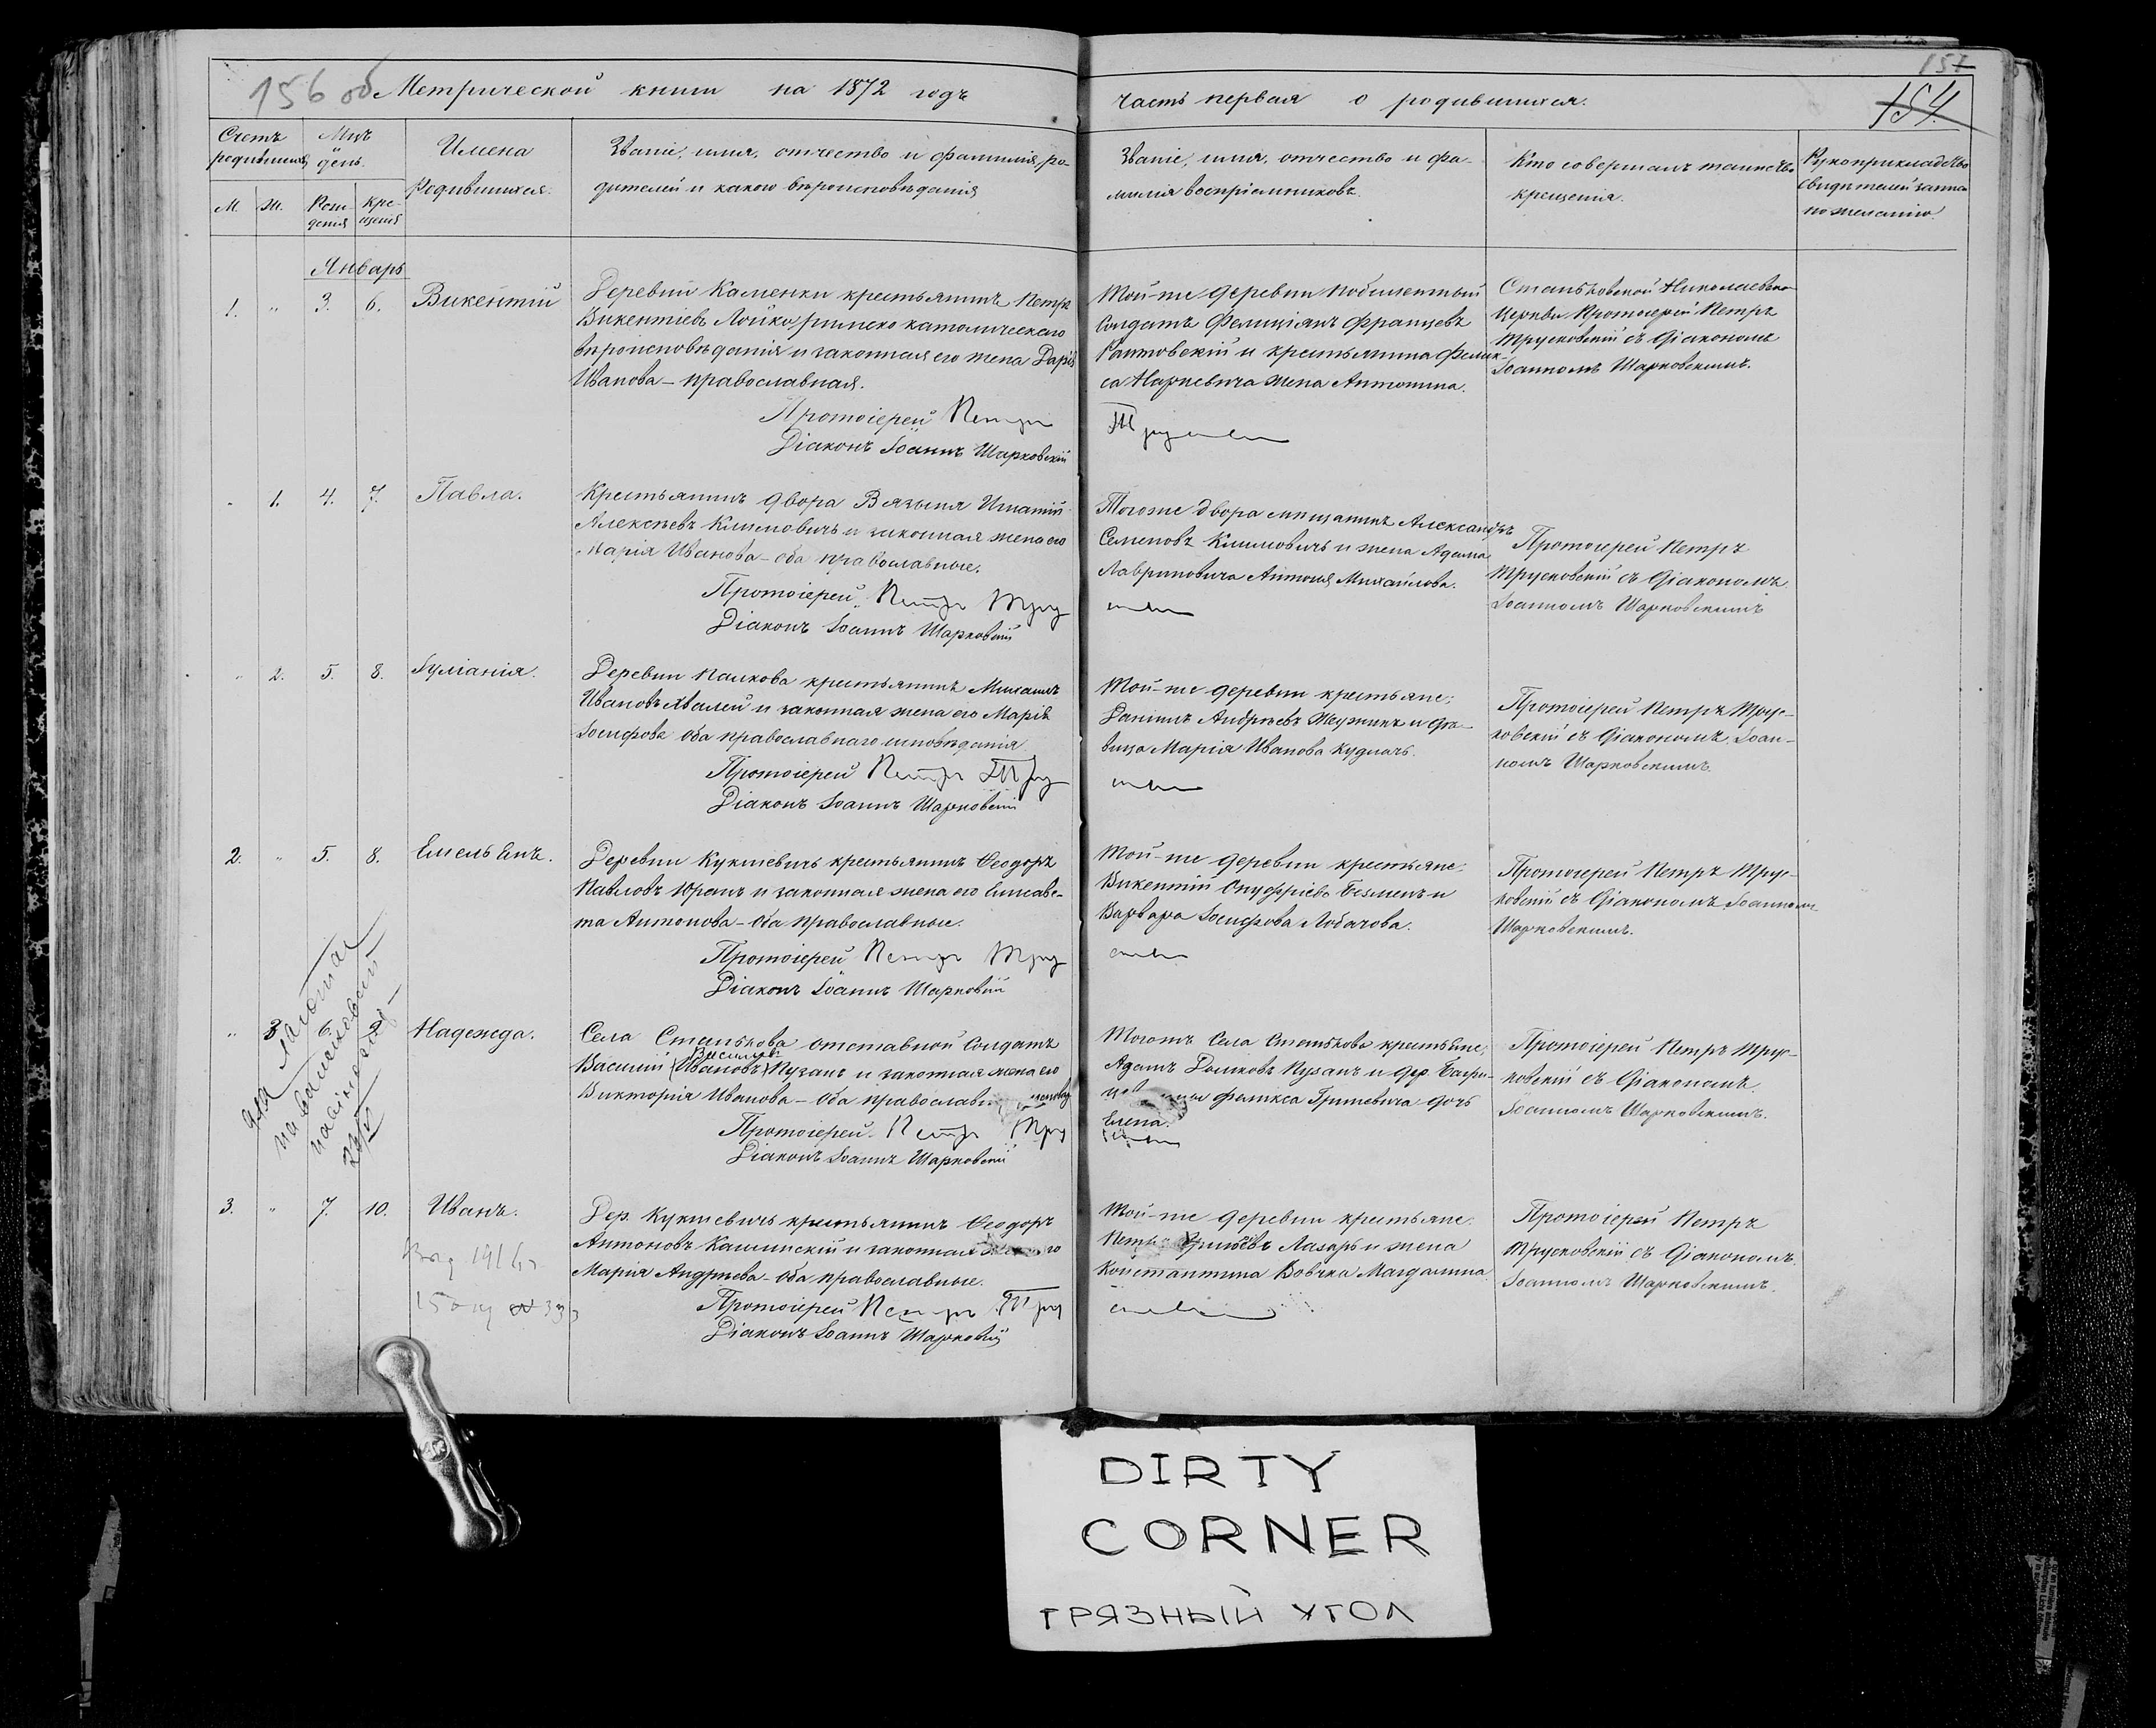 156 об
Метрической книги на 1872 годъ
часть первая о родившихся.
157
154.
Счетъ родившихся
Мцъ и день.
Имена Родившихся.
Званіе, имя, отчество и фамилія, ро-
дителей и какого вѣроисповѣданія
Званіе, имя, отчество и фа-
милія воспріемниковъ.
Кто совершалъ таинство
крещенія.
Рукоприкладство
свидѣтелей записи
по желанію.
М. Ж. Рож-
денія Кре-
щенія
Январь
1. " 3. 6. Викентій
Деревни Каменки крестьянинъ Петръ
Викентіевъ Лойко, римско католическаго
вѣроисповѣданія и законная его жена Дарія
Иванова - православная.
Протоіерей Петръ
Діаконъ Іоаннъ Шарковскій
Той-же деревни
Солдатъ Фелиціянъ Францевъ
и крестьянина Феликса
са Наркевича жена Антонина.
Станьковской Николаевской
Церкви Протоіерей Петръ
Трусковскій съ Діакономъ
Іоанномъ Шарковскимъ.
" 1. 4. 7. Павла.
Крестьянинъ двора Вязыня Игнатій
Алексѣевъ Климовичъ и законная жена его
Марія Иванова - оба православные.
Протоіерей Петръ Трус
Діаконъ Іоаннъ Шарковскій
Тогоже двора мѣщанинъ Александръ
Семеновъ Климовичъ и жена Адама
Лавриновича Антонія Михайлова.
Протоіерей Петръ
Трусковскій съ Діакономъ
Іоанномъ Шарковскимъ
" 2. 5. 8. Іуліанія.
Деревни Палкова крестьянинъ Михаилъ
Ивановъ Хвалей и законная жена его Марія
Іосифова оба православнаго исповѣданія
Протоіерей Петръ Трус
Діаконъ Іоаннъ Шарковскій
Той-же деревни крестьяне:
Даніилъ Андреевъ и дѣ-
вица Марія Иванова Кудлачъ.
Протоіерей Петръ Трус-
ковскій съ Діакономъ Іоан-
номъ Шарковскимъ.
2. " 5. 8. Емельянъ.
Деревни Кукшевичъ крестьянинъ Ѳеодоръ
Павловъ Юранъ и законная жена его Елисаве-
та Антонова - оба православные.
Протоіерей Петръ Трус
Діаконъ Іоаннъ Шарковскій
Той-же деревни крестьяне:
Викентій Онуфріевъ Безменъ и
Варвара Іосифова Лобачова.
Протоіерей Петръ Трус-
ковскій съ Діакономъ Іоанномъ
Шарковскимъ.
" 3. 6. 9. Надежда.
Села Станькова отставной Солдатъ
Васильевъ
Василій (Ивановъ) Пузанъ и законная жена его
Викторія Иванова - оба православн
Протоіерей Петръ Трус
Діаконъ Іоаннъ Шарковскій
Тогожъ Села Станькова крестьяне;
Адамъ Пузанъ и дер.
Феликса Гриневича дочь
Елена.
Протоіерей Петръ Трус-
ковскій съ Діакономъ
Іоанномъ Шарковскимъ.
3. " 7. 10. Иванъ.
Дер. Кукшевичъ крестьянинъ Ѳеодоръ
Антоновъ Калинскій и законная
Марія Андреева - оба православные.
Протоіерей Петръ Трус
Діаконъ Іоаннъ Шарковскій
Той-же деревни крестьяне:
Лазарь и жена
Константина Вовчка Магдалина.
Протоіерей Петръ
Трусковскій съ Діакономъ
Іоанномъ Шарковскимъ.
DIRTY
CORNER
ГРЯЗНЫЙ УГОЛ